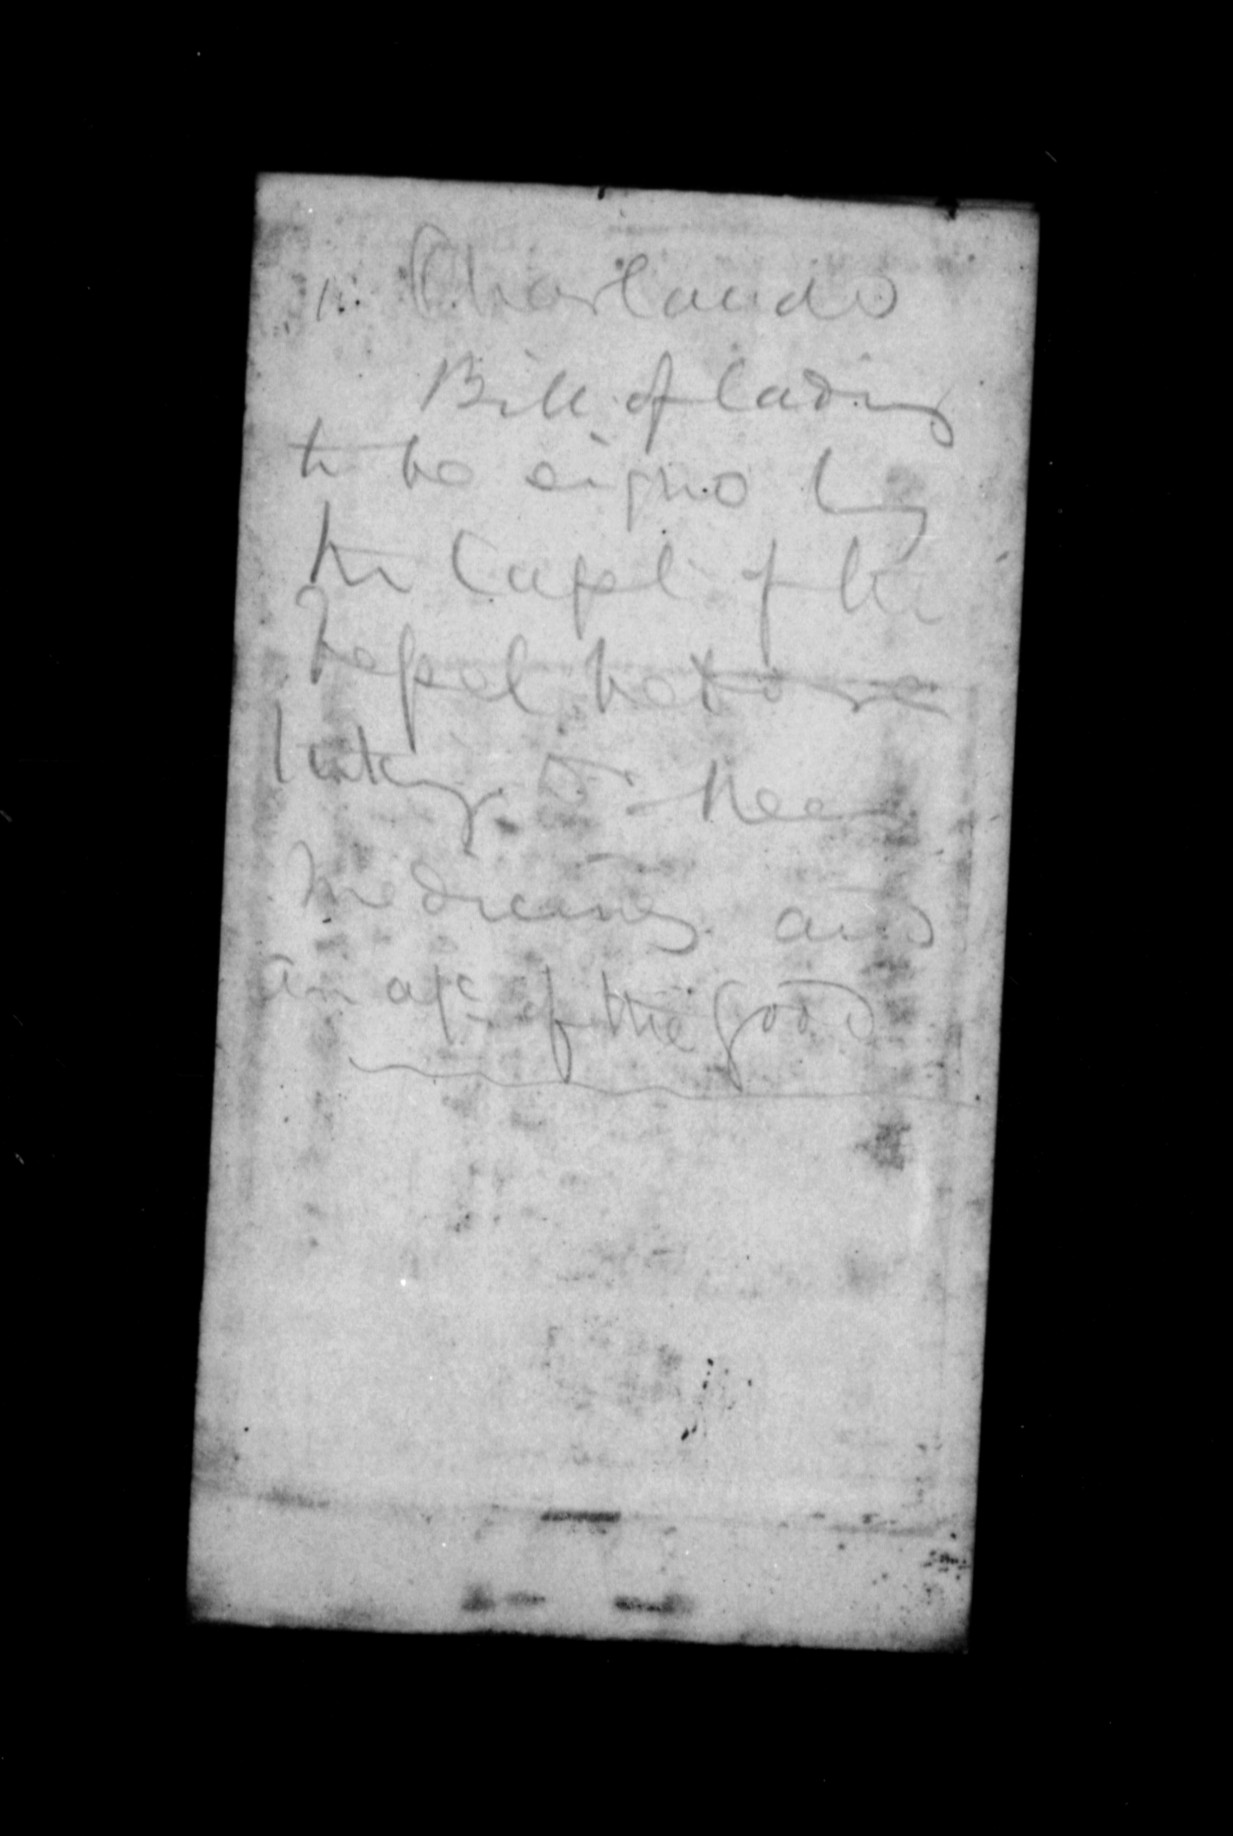 Charlauds
Bill of Lading
to be signed by
the Capt of the
Vessel before
Medicines and
an a/c of the good